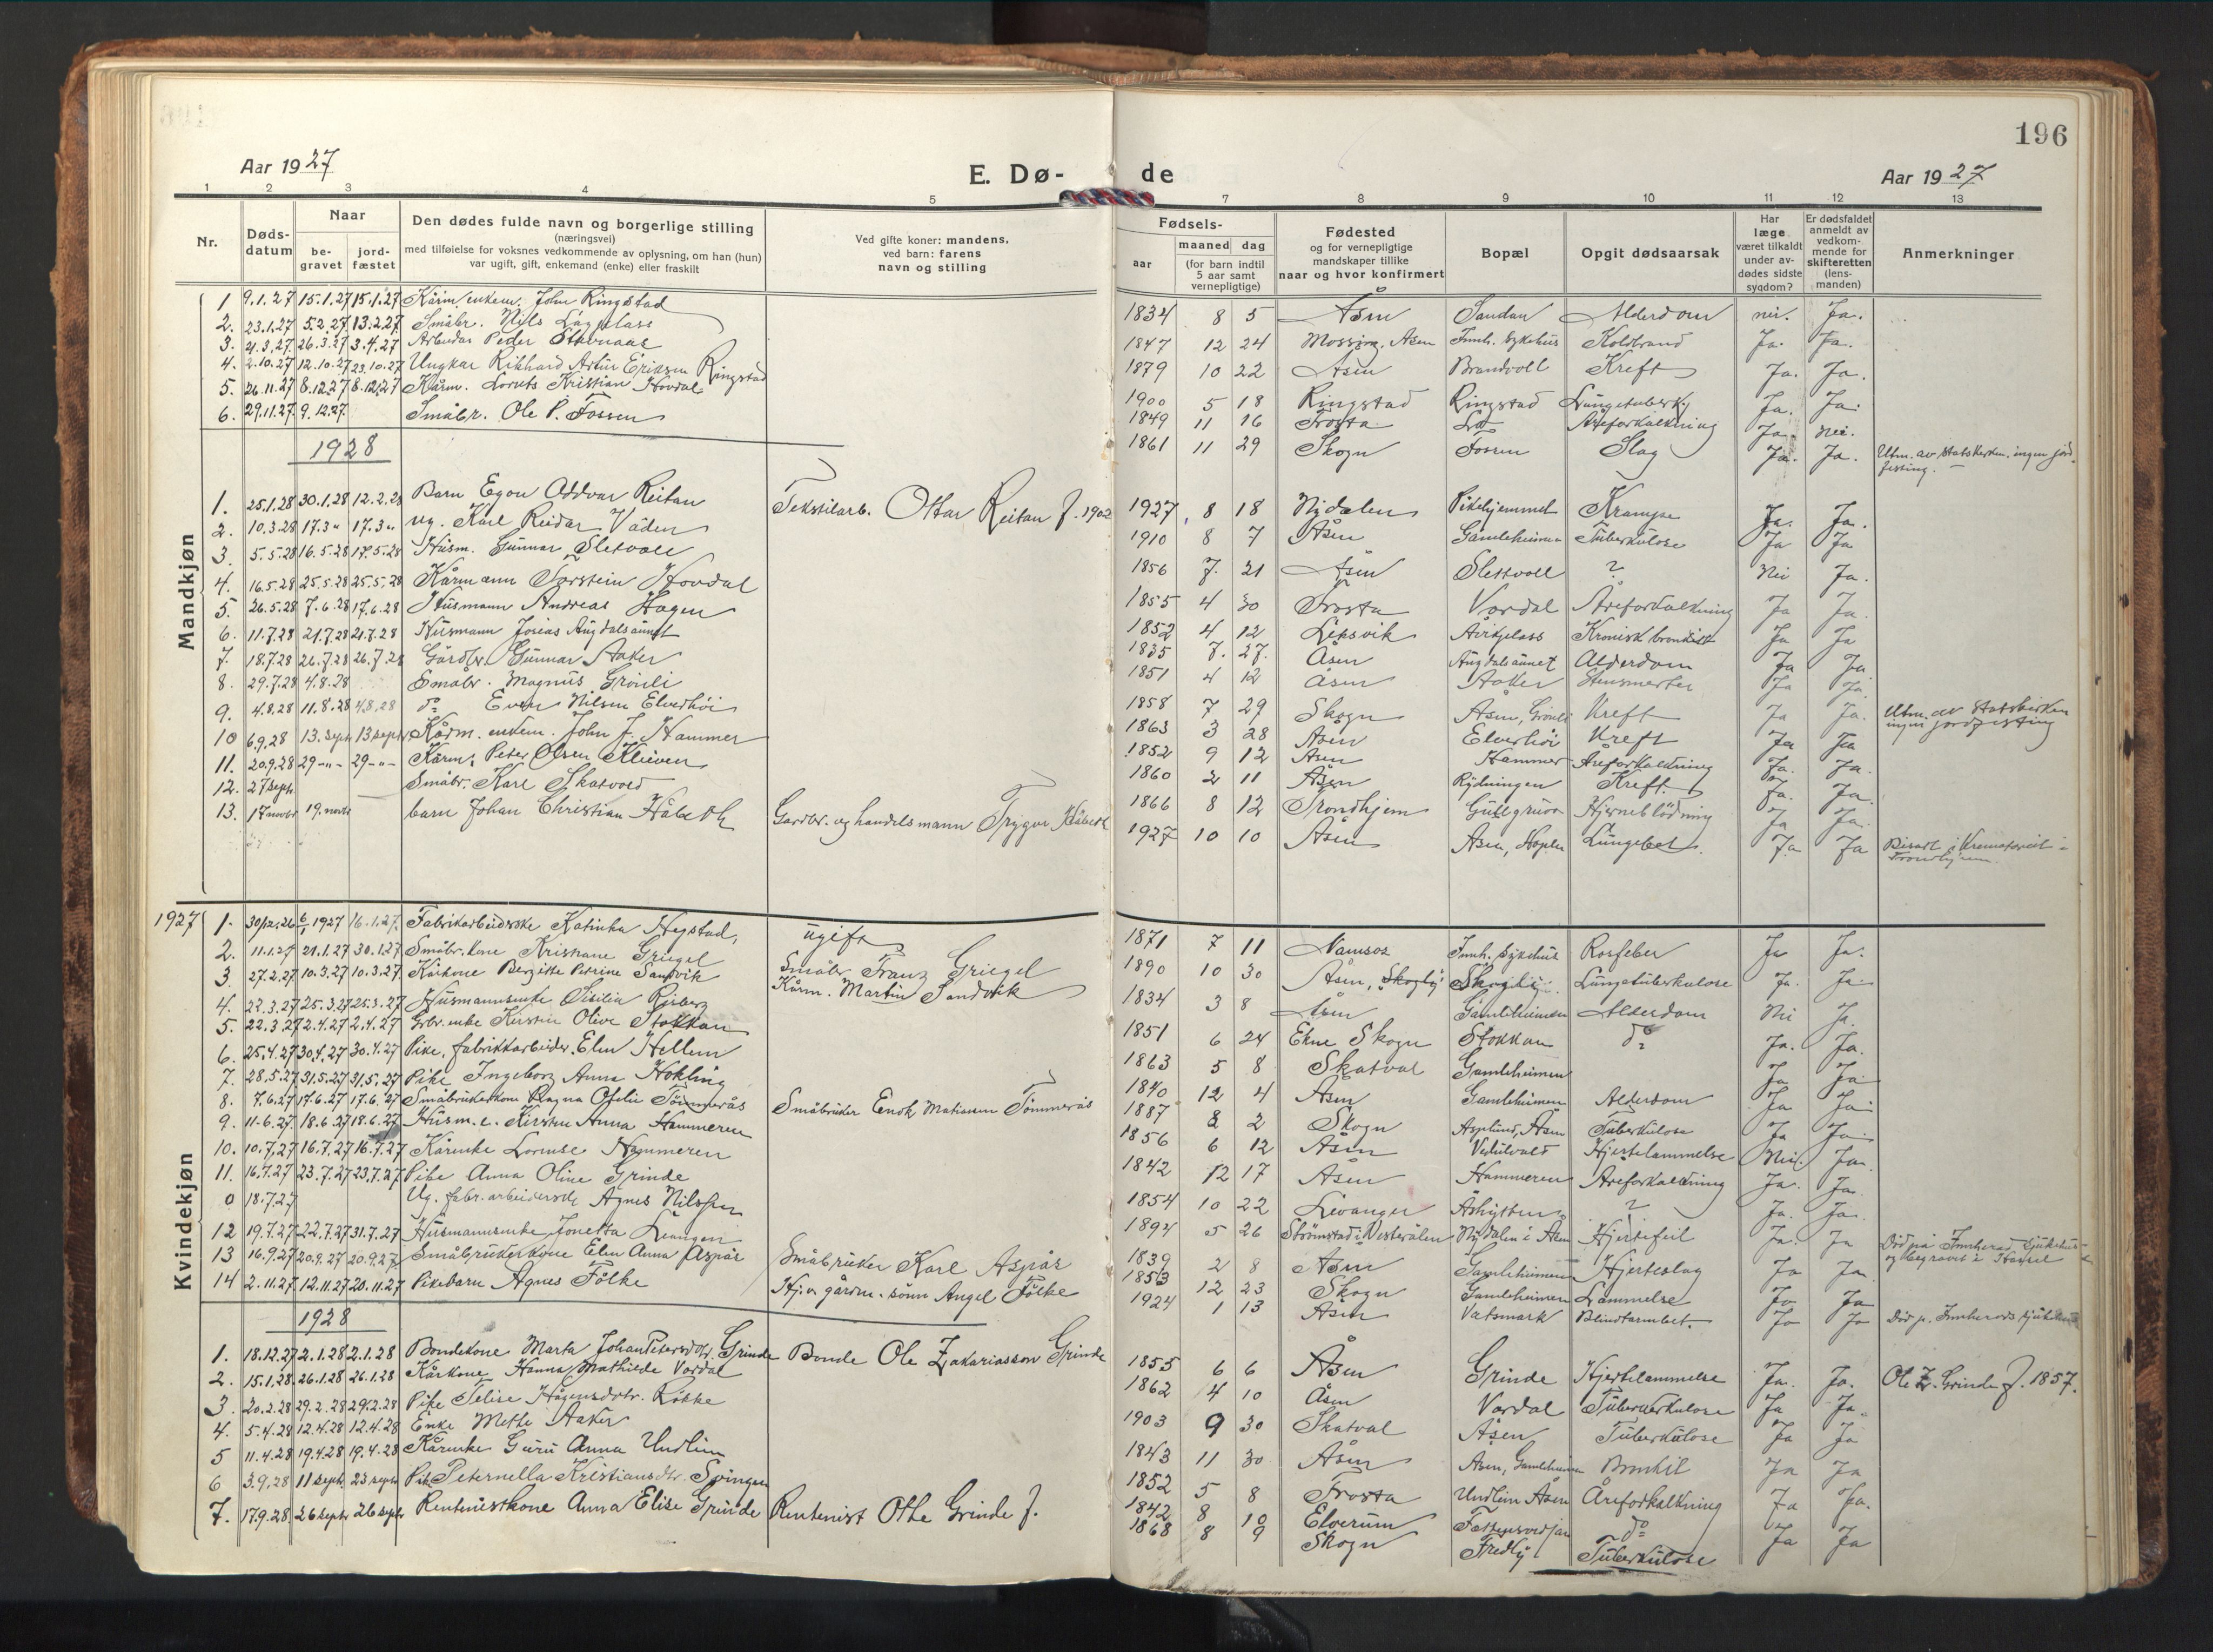 196
Aar 1927
E. Dø-
de
Aar 1927
1 2 3 4 5 7 8 9 10 11 12 13
Nr.
Døds-
datum
Naar
be-
gravet
jord-
fæstet
Den dødes fulde navn og borgerlige stilling
(næringsvei)
med tilføielse for voksnes vedkommende av oplysning, om han (hun)
var ugift, gift, enkemand (enke) eller fraskilt
Ved gifte koner: mandens,
ved barn: farens
navn og stilling
Fødsels-
aar
maaned dag
(for barn indtil
5 aar samt
vernepligtige)
Fødested
og for vernepligtige
mandskaper tillike
naar og hvor konfirmert
Bopæl
Opgit dødsaarsak
Har
læge
været tilkaldt
under av-
dødes sidste
sygdom?
Er dødsfaldet
anmeldt av
vedkom-
mende for
skifteretten
(lens-
manden)
Anmerkninger
Mandkjøn
1 9.1.27 15.1.27 15.1.27 Kårm. enkem. John Ringstad 1834 8 5 Åsen Sandan Alderdom nei. Ja.
2. 23.1.27 5.2.27 13.2.27 Småbr. Nils 1847 12 24 Åsen Innh. sykehus Koldbrand Ja. Ja.
3. 21.3.27 26.3.27 3.4.27 Arbeider Peder 1879 10 22 Åsen Brandvoll Kreft Ja. Ja.
4. 2.10.27 12.10.27 23.10.27 Ungkar Rikhard Artur Eriksen Ringstad 1900 5 18 Ringstad Ringstad Lungetuberk. Ja. Ja.
5. 26.11.27 8.12.27 8.12.27 Kårm. Lorents Kristian Hovdal 1849 11 16 Frosta Åreforkalkning Ja. Nei.
6. 29.11.27 9.12.27 Småbr. Ole P. Fossen 1861 11 29 Skogn Fossen Slag Ja. Ja. Utm. av statskirken, ingen jord-
festing.
1928
1. 25.1.28 30.1.28 12.2.28 Barn Egon Oddvar Reitan Tekstilarb. Ottar Reitan f. 1902 1927 8 18 Nydalen Pikehjemmet Krampe Ja. Ja.
2. 10.3.28 17.3 " 17.3 " Ug. Karl Reidar Vaden 1910 8 7 Åsen Gamleheimen Tuberkulose Ja Ja
3. 5.5.28 16.5.28 17.5.28 Husm. Gunnar Sletvoll 1856 7. 21 Åsen Slettvoll ? Nei Ja.
4. 16.5.28 25.5.28 25.5.28 Kårmann Torstein Hovdal 1855 4 30 Frosta Vordal Åreforkalkning Ja Ja.
5. 26.5.28 7.6.28 17.6.28 Husmann Andreas Hagen 1852 4 12 Leksvik Kronisk bronkitt Ja Ja
6. 11.7.28 21.7.28 21.7.28 Husmann Josias Augdalsaunet 1835 7. 27. Åsen Augdalsaunet Alderdom Ja Ja
7. 18.7.28 26.7.28 26.7.28 Gårdbr. Gunnar Aaker 1851 4 12 Åsen Aaker Ja Ja
8. 29.7.28 4.8.28 Småbr. Magnus Grønli 1858 7 29 Skogn Åsen, Grønli Kreft Ja Ja. Utm. av Statskirken
ingen jordfesting
9. 4.8.28 11.8.28 4.8.28 do Even Nilsen Elverhøi 1863 3 28 Åsen Elverhøi Kreft Ja Ja
10 6.9.28 13. sept 13 sept. Kårm. enkem. John J. Hammer 1852 9 12 Åsen Hammer Åreforkalkning Ja. Ja.
11. 20.9.28 29 -"- 29 -"- Kårm. Peter Olsen Kleiven 1860 2 11 Åsen Rydningen Kreft Ja. Ja.
12. 27 sept. Småbr. Karl Skatvold 1866 8 12 Trondhjem Gullgruva Hjerneblödning Ja Ja.
13. 17 novbr 19. novbr barn Johan Christian Gardbr. og handelsmann Trygve 1927 10 10 Åsen Åsen, Hoplen Lungebet. Ja Ja Bisatt i Krematoriet i
Trondhjem.
Kvindekjøn
1927 1. 30/12.26 6/1 1927 16.1.27. Fabrikarbeiderske Katinka Hegstad, ugift 1871 7 11 Namsos Innh. sykehus Rosfeber Ja Ja.
2. 11.1.27 21.1.27 30.1.27 Småbr. kone Kristiane Griegel Småbr. Franz Griegel 1890 10 30 Åsen, Skoglij Skoglij Lungetuberkulose Ja. Ja
3. 27.2.27 10.3.27 10.3.27 Kårkone Bergitte Petrine Sandvik Kårm. Martin Sandvik 1834 3 8 Åsen Gamleheimen Alderdom Nei Ja.
4. 22.3.27 25.3.27 25.3.27 Husmannsenke Sisilia 1851 6 24 Ekne Skogn Stokkan do Ja. Ja.
5. 22.3.27 2.4.27 2.4.27 Grbr. enke Kirstin Olive Stokkan 1863 5 8 Skatval Gamleheimen Ja Ja
6. 25.4.27 30.4.27 30.4.27 Pike, fabrikkarbeider Elen Hellem 1840 12 4 Åsen Gamleheimen Alderdom Ja Ja
7. 28.5.27 31.5.27 31.5.27 Pike Ingeborg Anna Hokling 1887 2 2 Skogn Asplund, Åsen Tuberkulose Ja Ja
8. 7.6.27 17.6.27 17.6.27 Småbrukerkone Ragna Ofelie Tömmerås Småbruker Enok Matiassen Tömmerås 1856 6 12 Åsen Hjertelammelse Nei. Ja.
9. 11.6.27 18.6.27 18.6.27 Husm.e. Kirstin Anna Hammeren 1842 12 17 Åsen Hammeren Åreforkalkning Ja. Ja.
10. 10.7.27 16.7.27 16.7.27 Kårenke Lovise Hammeren 1854 10 22 Levanger ? Ja. Ja.
11. 16.7.27 23.7.27 23.7.27 Pike Anna Oline Grinde 1894 5 26 Strömstad i Vesterålen Nydalen i Åsen Hjertefeil Ja. Ja Död på Innherad Sjukehus
og begravet i
0 18.7.27 Ug. fabr. arbeiderske Agnes Nilssen 1839 2 8 Åsen Gamleheimen Hjerteslag Ja Ja
12 19.7.27 22.7.27 31.7.27 Husmannsenke Jonetta 1853 12 23 Skogn Gamleheimen Lammelse Ja Ja
13 16.9.27 20.9.27 20.9.27 Småbrukerkone Elen Anna Aspås Småbruker Karl Aspås 1924 1 13 Åsen Vatsmark Blindtarmbet. Ja Ja Död p. Innherads sjukehus
14 2.11.27 12.11.27 20.11.27 Pikebarn Agnes Fölke Hj.v. gårdm. sönn Angel Fölke
1928
1. 18.12.27 2.1.28 2.1.28 Bondekone Marta JohanPetersdtr. Grinde Bonde Ole Zakariasson Grinde 1855 6 6 Åsen Grinde Hjertelammelse Ja. Ja. Ole Z. Grinde f. 1857.
2. 15.1.28 26.1.28 26.1.28 Kårkone Hanna Mathilde Vordal 1862 4 10 Åsen Vordal Tuberkulose Ja Ja.
3. 20.2.28 29.2.28 29.2.28 Pike Selise Hågensdtr. Løkke 1903 9 30 Skatval Åsen Tuberkulose Ja Ja
4. 5.4.28 12.4.28 12.4.28 Enke Mette Aaker 1843 11 30 Åsen Åsen, Gamleheimen Bronkit Ja Ja
5 11.4.28 19.4.28 19.4.28 Kårenke Guru Anna Undlien 1852 5 8 Frosta Undlien Åsen Åreforkalkning Ja Ja.
6 3.9.28 11 sept. 23 sept. Pike Peternella Kristiansdtr. 1842 8 10 Elverum do Ja Ja
7. 17.9.28 26 sept 26 sept Rentenistkone Anna Elise Grinde Rentenist Othe Grinde f. 1868 8 9 Skogn Fredly Tuberkulose